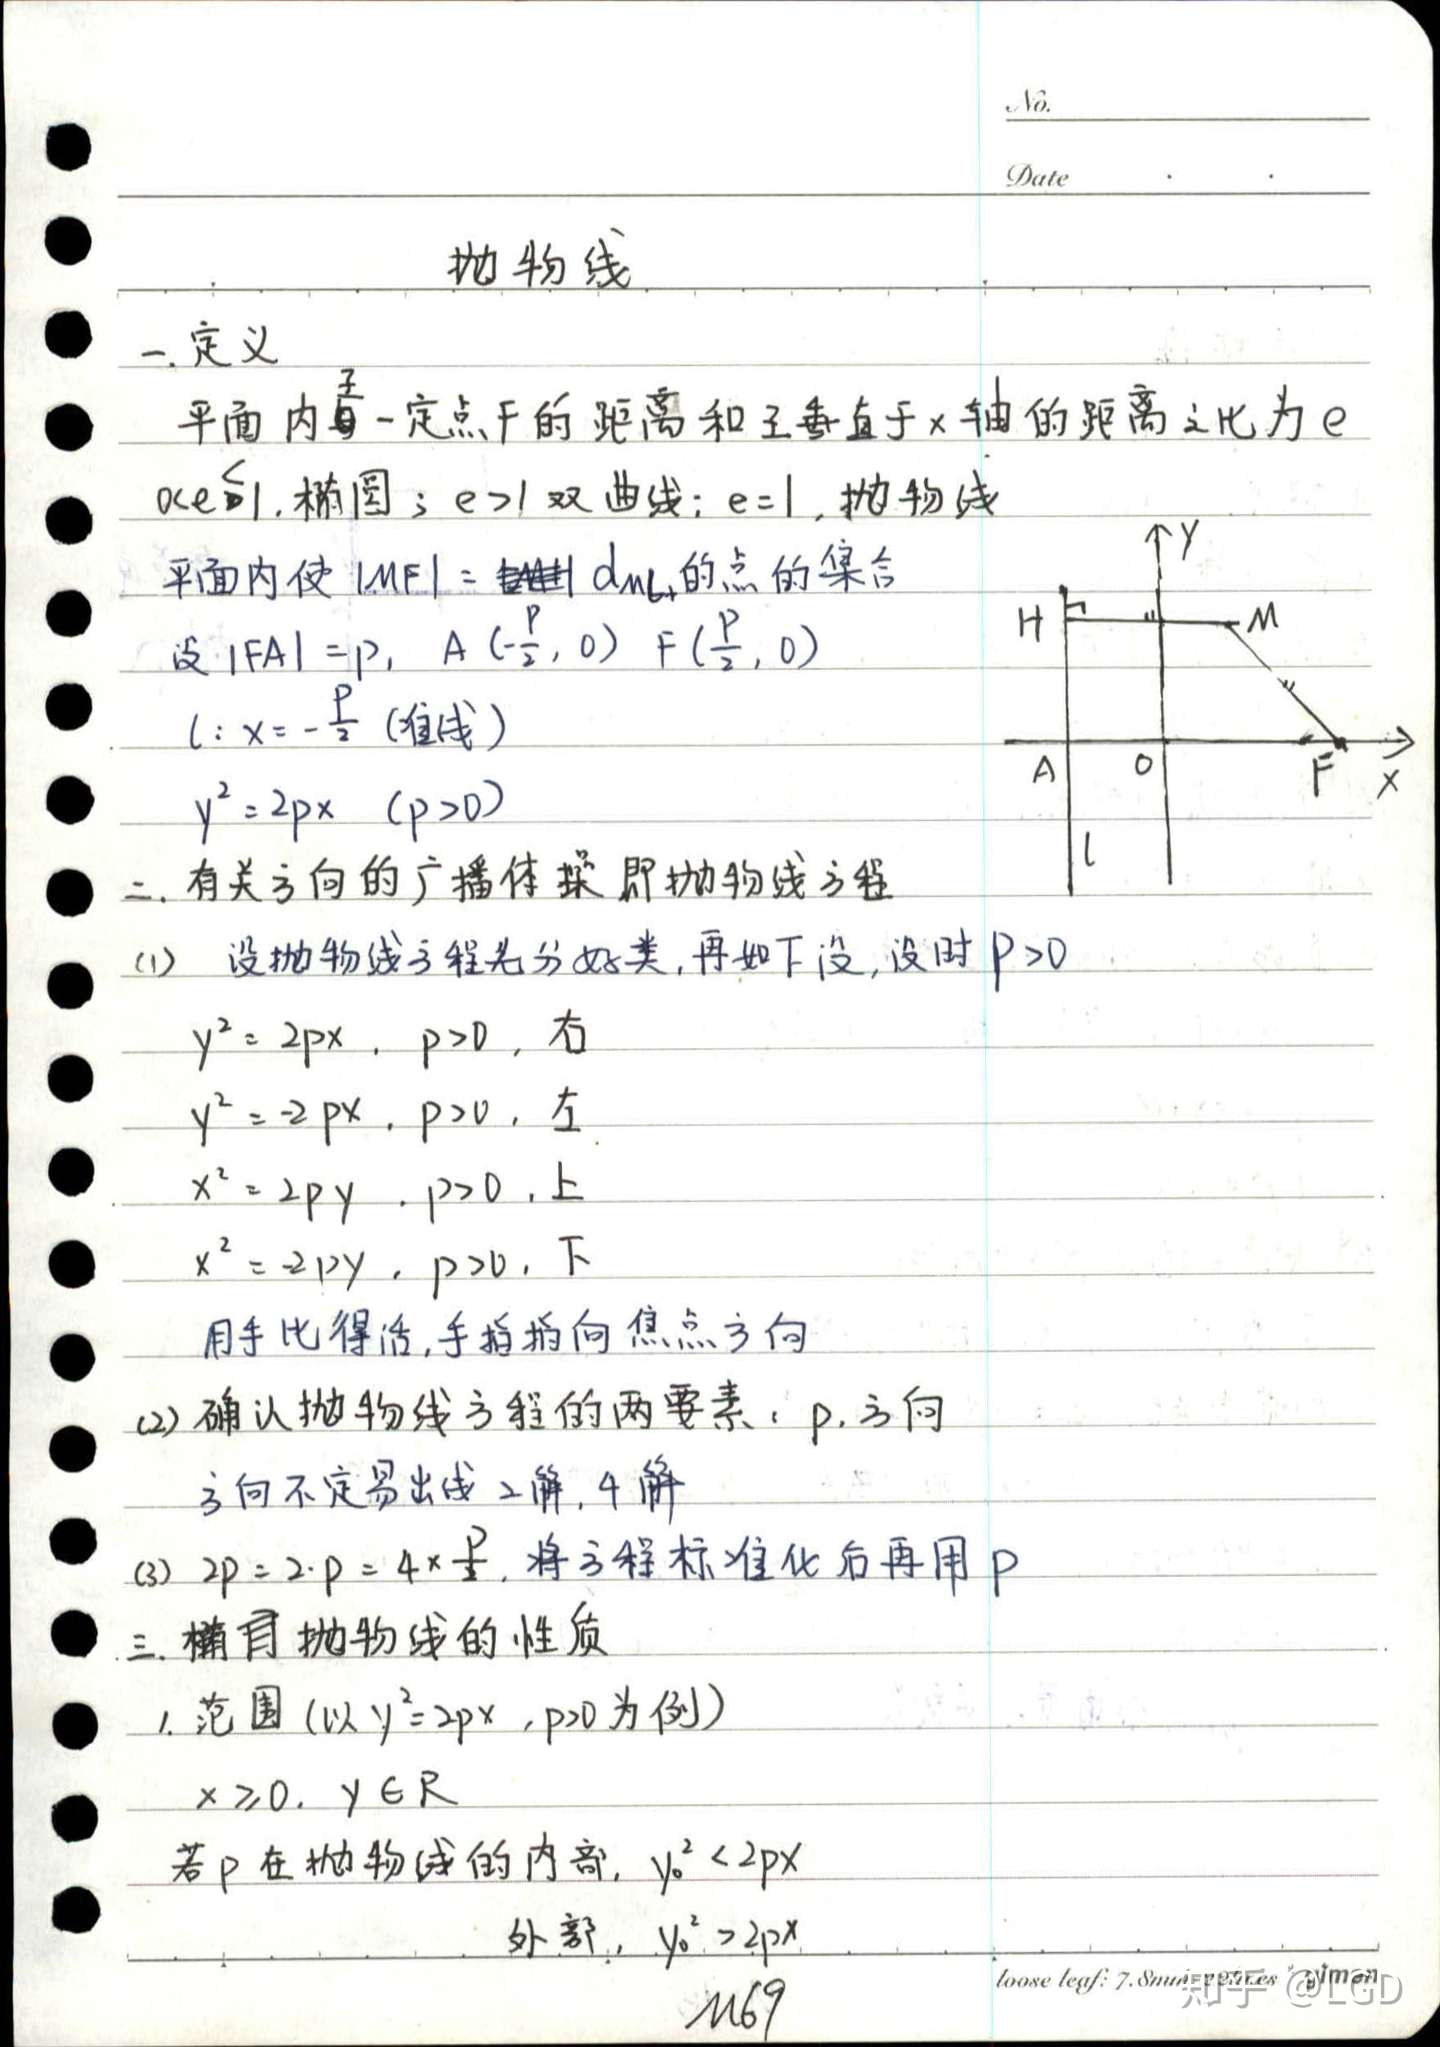 No.
Date
抛物线
一.定义
平面内到一定点F的距离和到垂直于x轴的距离之比为e
0<e<1,椭圆;e>1双曲线;e=1,抛物线
平面内使|MF|= dM-l的点的集合
设|FA|=p, A(-p/2, 0) F(p/2, 0)
l: x=-p/2 (准线)
y²=2px (p>0)
y
H
M
A
O
F
x
l
二.有关方向的广播体操 即抛物线方程
(1) 设抛物线方程先分好类,再如下设,设时p>0
y²=2px, p>0, 右
y²=-2px, p>0, 左
x²=2py, p>0, 上
x²=-2py, p>0, 下
用手比得活,手指指向焦点方向
(2) 确认抛物线方程的两要素: p,方向
方向不定易出线2解,4解
(3) 2p=2·p=4×p/2, 将方程标准化后再用p
三. 抛物线的性质
1.范围(以y²=2px, p>0为例)
x≥0, y∈R
若p在抛物线的内部, y₀²<2px
外部, y₀²>2px
loose leaf: 7.8mm
M69
知乎 @LGD